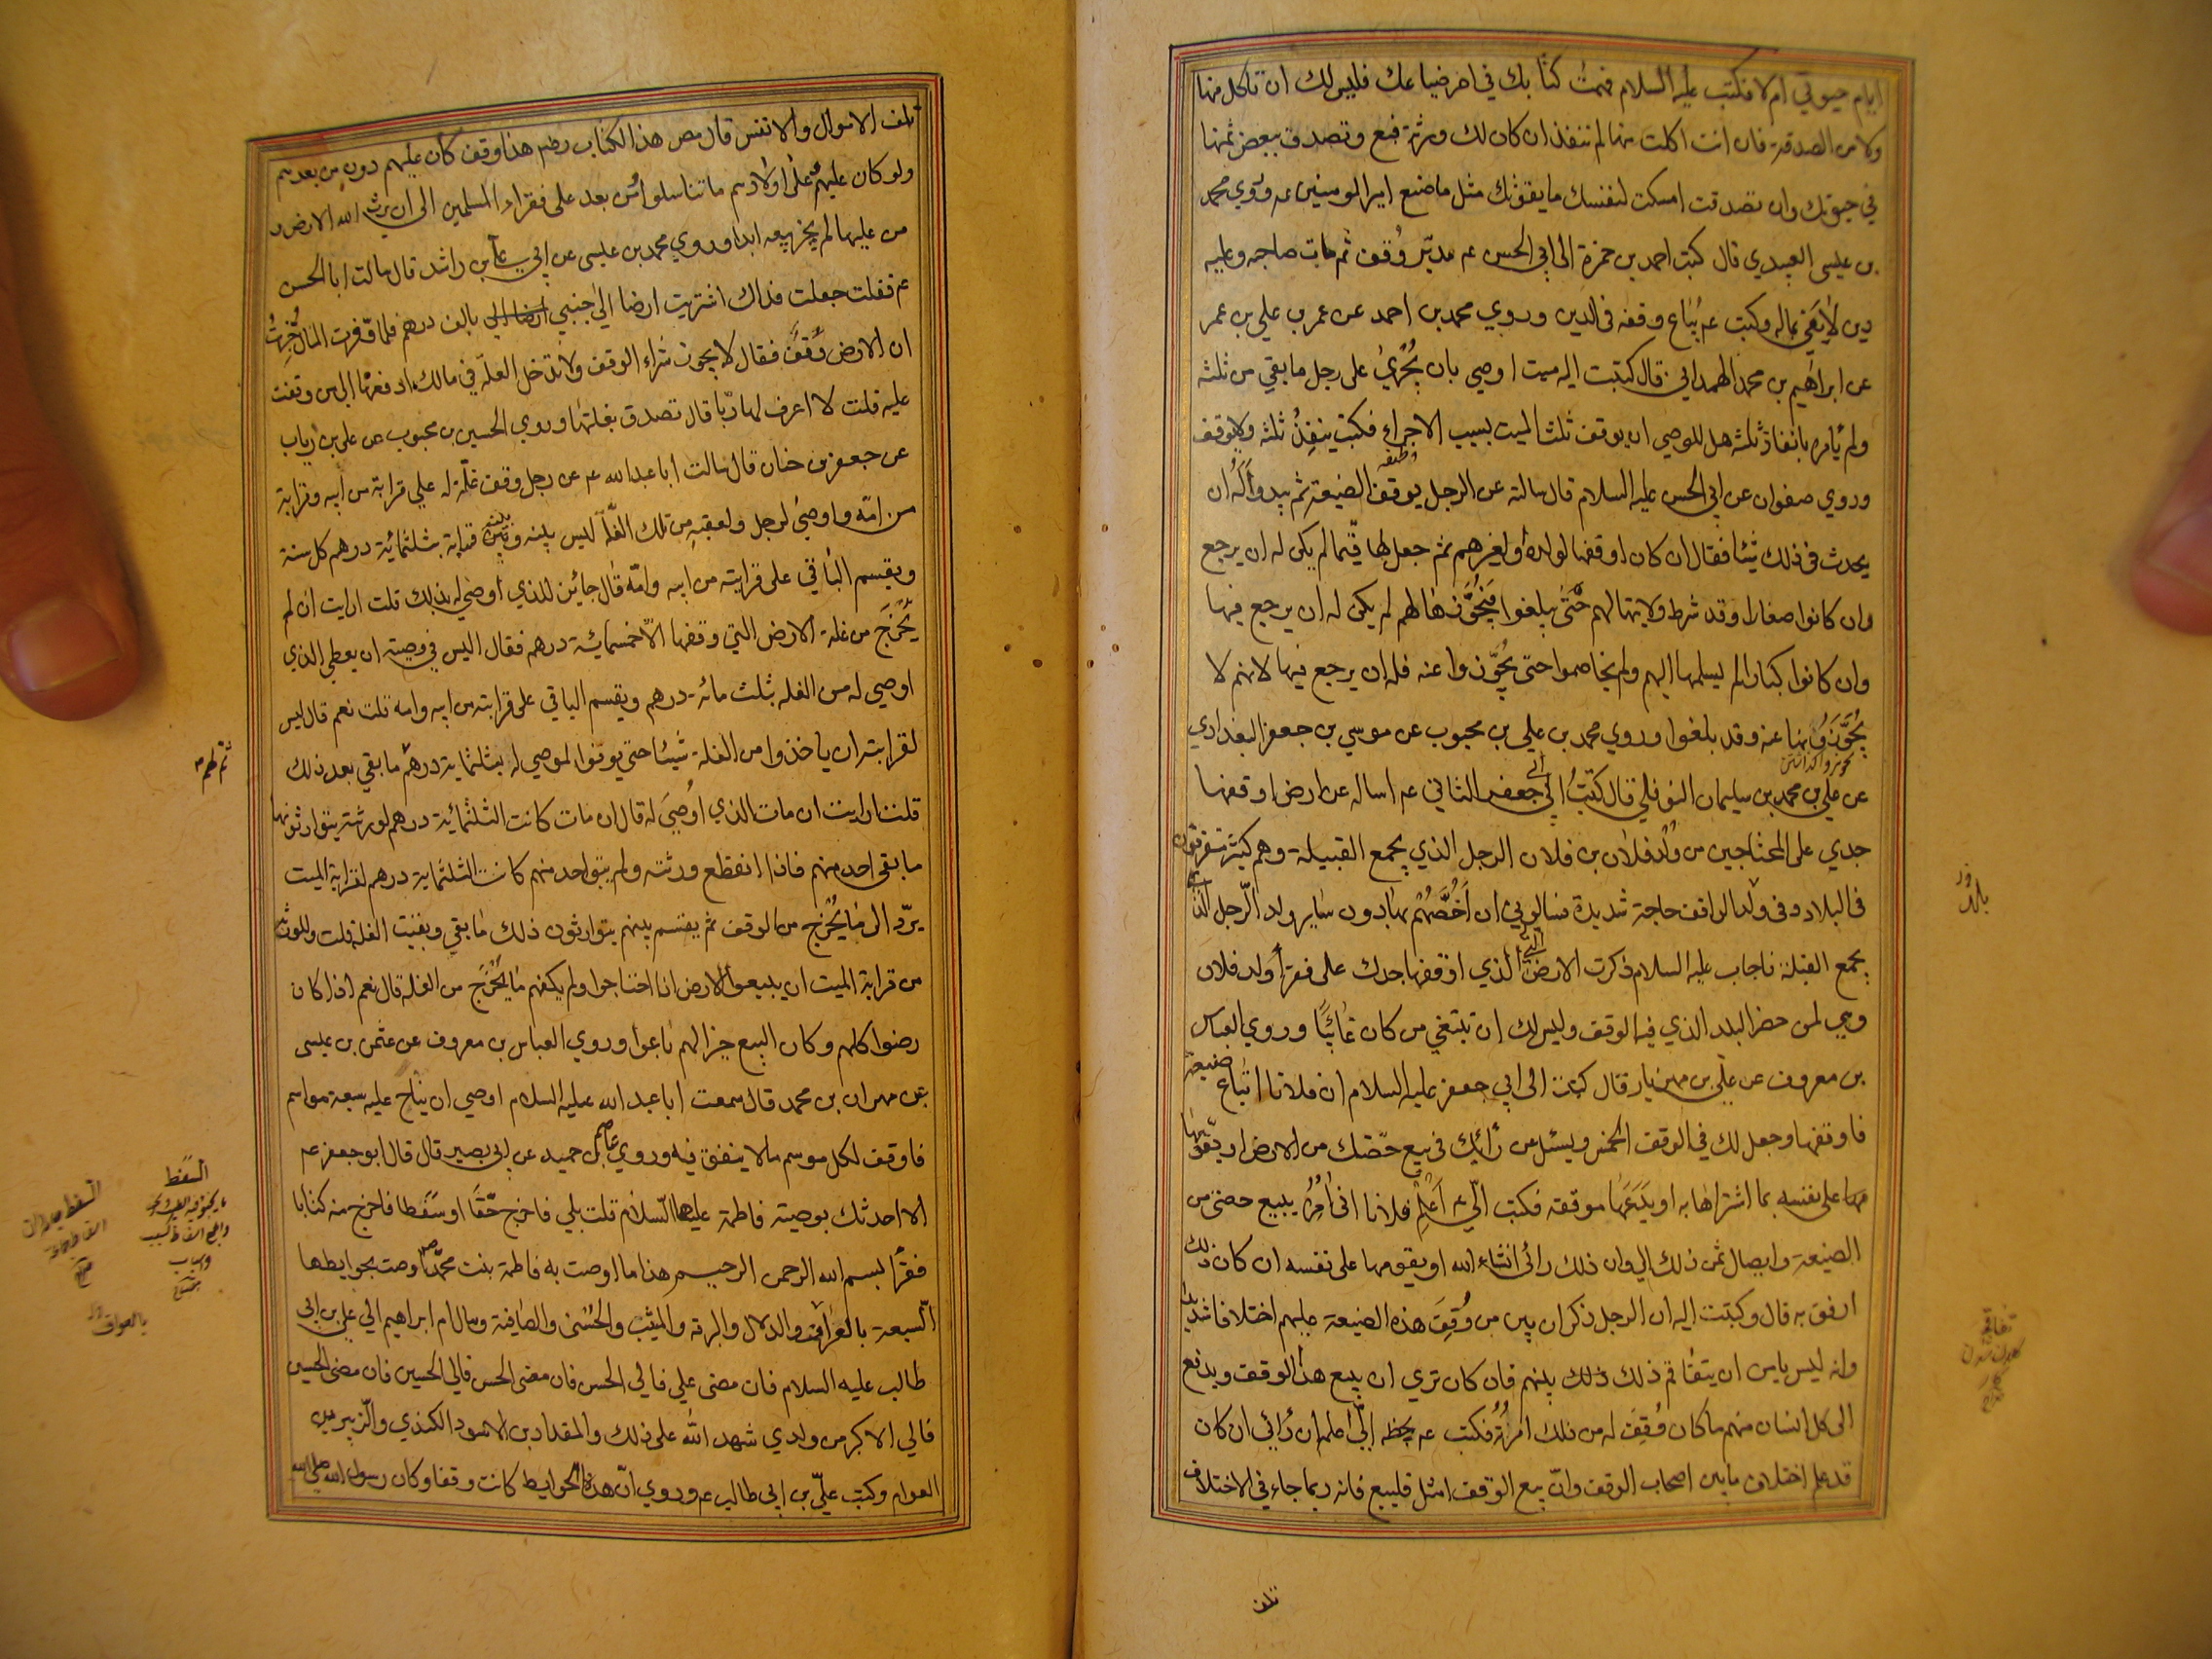 ايام حيوتي ام لا فكتب عليه السلام فهمت كتابك في امر ضياعك فليس لك ان تاكل منها
ولا من الصدقة فان انت اكلت منها لم تنفذ ان كان لك ورثة فبع وتصدق ببعض ثمنها
في حيوتك وان تصدقت امسكت لنفسك ما يقوتك مثل ما صنع امير المومنين عم وروي محمد
بن عيسى العبيدي قال كتب احمد بن حمزة الى ابي الحسن عم مدبّر وُقف ثم مات صاحبه وعليه
دين لا يَفي بماله وكتب عم يُباع وقفه في الدين وروي محمد بن احمد عن عمر بن علي بن عمر
عن ابراهيم بن محمد الهمداني قال كتبت اليه ميت اوصي بان يُجْري على رجل ما بقي من ثلثه
ولم يأمر بانفاذ ثلثه هل للوصي ان يوقف ثلث الميت بسبب الاجراء فكتب ينفِذُ ثلثه ولا يوقف
وروي صفوان عن ابي الحسن عليه السلام قال سالته عن الرجل يوقف الضيعة ثم يبدو له ان
يحدث في ذلك شيئا فقال ان كان اوقفها لولده او لغيرهم ثم جعل لها قيّما لم يكن له ان يرجع
وان كانوا صغارا وقد شرط ولايتها لهم حتّى يبلغوا فيَحُوزها لهم لم يكن له ان يرجع فيها
وان كانوا كبارا لم يسلمها اليهم ولم يخاصموا حتى يحُوّزوا عنه فله ان يرجع فيها لانهم لا
يحُوّزونها عنه وقد بلغوا وروي محمد بن علي بن محبوب عن موسي بن جعفر البغدادي
عن علي بن محمد بن سليمان النوفلي قال كتبتُ الى ابي جعفر الثاني عم اساله عن ارض اوقفها
جدي على المحتاجين من وُلد فلان بن فلان الرجل الذي يجمع القبيلة وهم كثير متفرقون
في البلاد وفي ولد الواقف حاجة شديدة فسالوني ان اَخُصَّهُمْ بها دون ساير ولد الرجل الذي
يجمع القبيلة فاجاب عليه السلام ذكرت الارض الذي اوقفها جدك على فقراء ولد فلان
وهي لمن حضر البلد الذي فيه الوقف وليس لك ان تبتغي من كان غائبًا وروي العباس
بن معروف عن علي بن مهزيار قال كتبت الى ابي جعفر عليه السلام ان فلانا ابتاع ضيعة
فاوقفها وجعل لك في الوقف الخمس ويسئل عن رأيك في بيع حصّتك من الارض او يقوّمها
على نفسه بما اشتراها به او يَدَعها موقفه فكتب اليّ اَعْلِمْ فلانا اني امرُه ببيع حصتي من
الضيعة وايصال ثمن ذلك الي وان ذلك رائي انشاء الله او يقومها على نفسه ان كان ذلك
ارفق به قال وكتبت اليه ان الرجل ذكر ان بين من وُقِفَ هذه الضيعة عليهم اختلافا شديدا
وانه ليس يامن ان يتفاقم ذلك بينهم فان كان تري ان يبيع هذا الوقف ويدفع
الى كل انسان منهم ما كان وُقِفَ له من ذلك امرتُه فكتب عم بخطه اليّ اعلم ان رأئي ان كان
قد علم اختلاف ما بين اصحاب الوقف وانّ بيع الوقف امثل فليبع فانه ربما جاء في الاختلاف
تلف
تلف الاموال والانفس قال مص هذا الكتاب رضي هذا وقف كان عليهم دون من بعدهم
ولو كان عليهم وعلى اولادهم ما تناسلوا ومن بعد على فقراء المسلمين الى ان يرث الله الارض و
من عليها لم يجز بيعه ابدا وروي محمد بن عيسى عن ابي علي بن راشد قال سالت ابا الحسن
عم فقلت جعلت فداك اشتريت ارضا الى جنبي بالف درهم فلما وفّرت المال خُبِّرتُ
ان الارض وَقفٌ فقال لا يجوز شراء الوقف ولا تدخل الغلّة في مالك ادفعها الى من وقفت
عليه قلت لا اعرف لها ربّا قال تصدق بغلتها وروي الحسن بن محبوب عن علي بن رياب
عن جعفر بن حنان قال سالت ابا عبد الله عم عن رجل وقف غلّة له علي قرابة من ابيه وقرابة
من امّه واوصى لرجل ولعقبه من تلك الغلّة ليس بينه وبينه قرابة بثلثمائة درهم كل سنة
ويقسم الباقي على قرابته من ابيه وامّه قال جائز للذي اوصي له بذلك قلت ارايت ان لم
يُخْرَج من غلة الارض التي وقفها الّا خمسمائة درهم فقال اليس في وصيته ان يعطي الذي
اوصي له من الغله بثلث مائة درهم ويقسم الباقي على قرابته من ابيه وامه قلت نعم قال ليس
لقرابته ان ياخذوا من الغلة شيئا حتى يوفوا الموصي له بثلثمائة درهم ما بقي بعد ذلك
ثم لهم
قلت ارايت ان مات الذي اوصيَ له قال ان مات كانت الثلثمائة درهم لورثته يتوارثونها
ما بقي احد منهم فاذا انقطع ورثته ولم يبق احد منهم كانت الثلثماية درهم لقرابة الميت
يردّ الى ما يُخْرَج من الوقف ثم يقسم بينهم يتوارثون ذلك ما بقي وبقيت الغلة قلت وللورثة
من قرابة الميت ان يبيعوا الارض اذا احتاجوا ولم يكفهم ما يُخْرَج من الغلة قال نعم اذا كان
رضوا كلهم وكان البيع خيرا لهم باعوا وروي العباس بن معروف عن عثمن بن عيسى
عن مهران بن محمد قال سمعت ابا عبد الله عليه السلام اوصي ان يناح عليه سبعة مواسم
فاوقف لكل موسم مالا ينفق فيه وروي عاصم بن حميد عن ابي بصير قال قال ابو جعفر عم
الا احدثك بوصية فاطمة عليها السلام قلت بلي فاخرج حقّا او سَفَطا فاخرج منه كتابا
فقرأ بسم الله الرحمن الرحيم هذا ما اوصت به فاطمة بنت محمّد اوصت بحوايطها
السبعة بالعَواف والدلال والبرقة والميثب والحُسْنى والصافية ومال ام ابراهيم الى علي بن ابي
طالب عليه السلام فان مضى علي فالي الحسن فان مضى الحسن فالي الحسين فان مضى الحسين
فالي الاكبر من ولدي شهد الله على ذلك والمقداد بن الاسود الكندي والزّبير بن
العوام وكتب عليّ بن ابي طالب عم وروي انّ هذه الحوايط كانت وقفا وكان رسول الله صلي الله
السفط